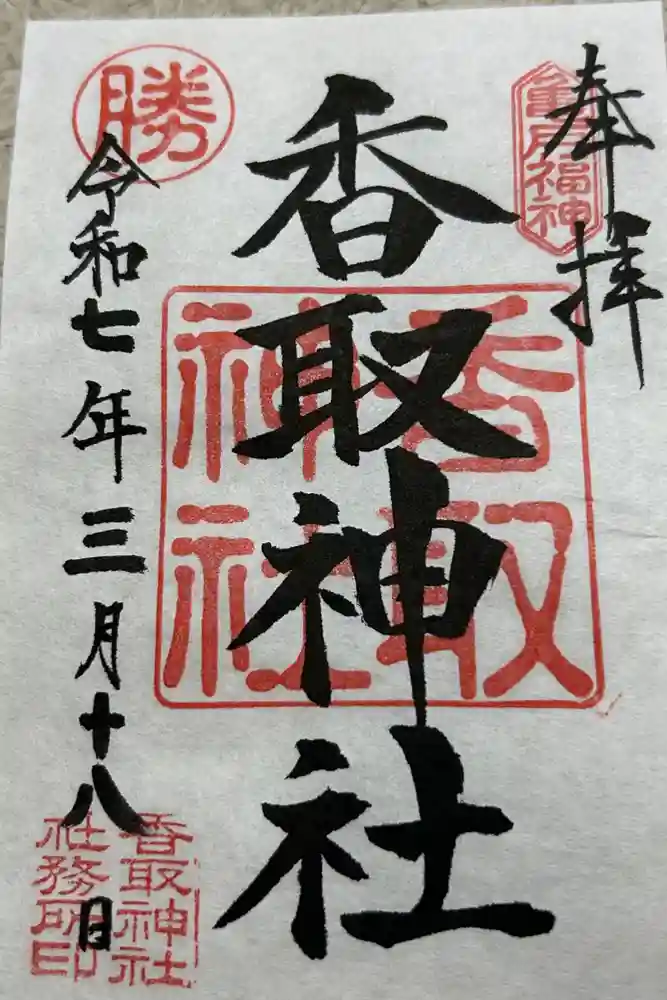 奉拝
龜戸福神
香取神社
香取
神社
勝
令和七年三月十八日
香取神社
社務所印